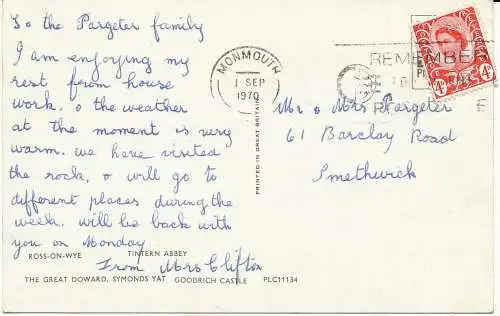 To the Pargeter family
I am enjoying my
rest from house
work. & the weather
at the moment is very
warm. we have visited
the rock, & will go to
different places during the
week. will be back with
you on Monday
From Mrs Clifton
ROSS-ON-WYE TINTERN ABBEY
THE GREAT DOWARD, SYMONDS YAT GOODRICH CASTLE PLC11134
PRINTED IN GREAT BRITAIN
MONMOUTH
1 SEP
1970
REMEMBER
4D
4D
Mr & Mrs Pargeter
61 Barclay Road
Smethwick